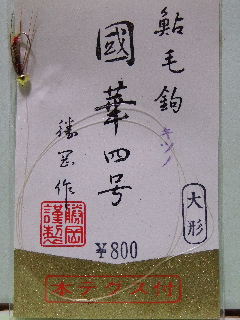 鮎毛鈎
キツネ
大形
國華四号
勝岡作
勝岡
謹製
¥800
本テグス付